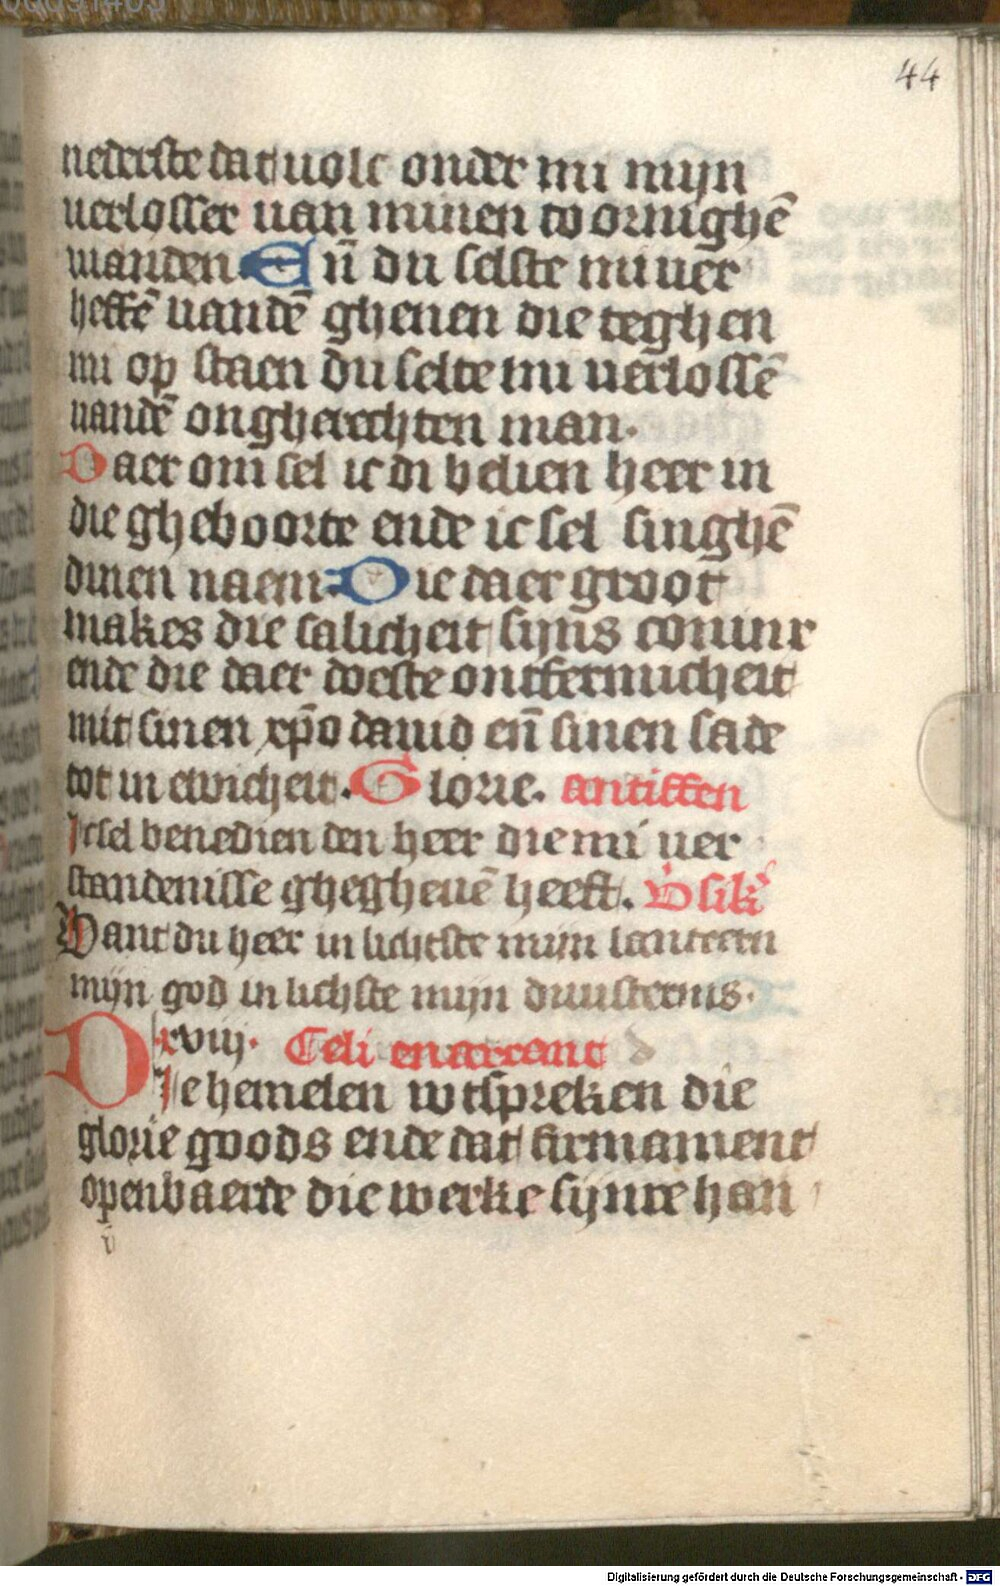 44
nederste dat uolc onder mi mijn
uerlosser uan minen toornighē
uianden Eñ du selste mi uer
heffē uandē ghenen die teghen
mi op staen du selte mi uerlossē
uandē ongherechten man.
Daer om sel ic di belien heer in
die gheboorte ende ic sel singhē
dinen naem Die daer groot
makes die salicheit sijns coninx
ende die daer doeste ontfermicheit
mit sinen xp̄o dauid eñ sinen sade
tot in ewicheit. Glorie. antiffen
Ic sel benedien den heer die mi uer
standenisse ghegheuē heeft.
Want du heer in lichtste mijn lanteern
mijn god in lichste mijn duusternis.
xviij. Celi enarrant
Die hemelen wtspreken die
glorie goods ende dat firmament
openbaerde die werke sijnre han
Digitalisierung gefördert durch die Deutsche Forschungsgemeinschaft - DFG